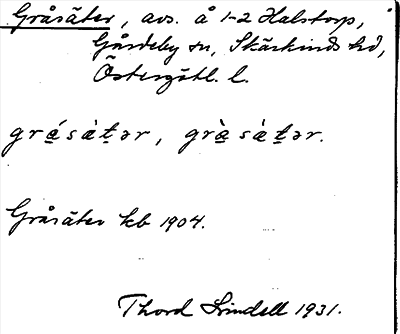 Gråsäter, avs. å 1-2 Halstorp,
Gårdeby sn, Skärkinds hd,
Östergötl. l.
grá̱sàt̲ər, grà̱sàt̲ər.
Gråsäter kb 1904.
Thord Lindell 1931.